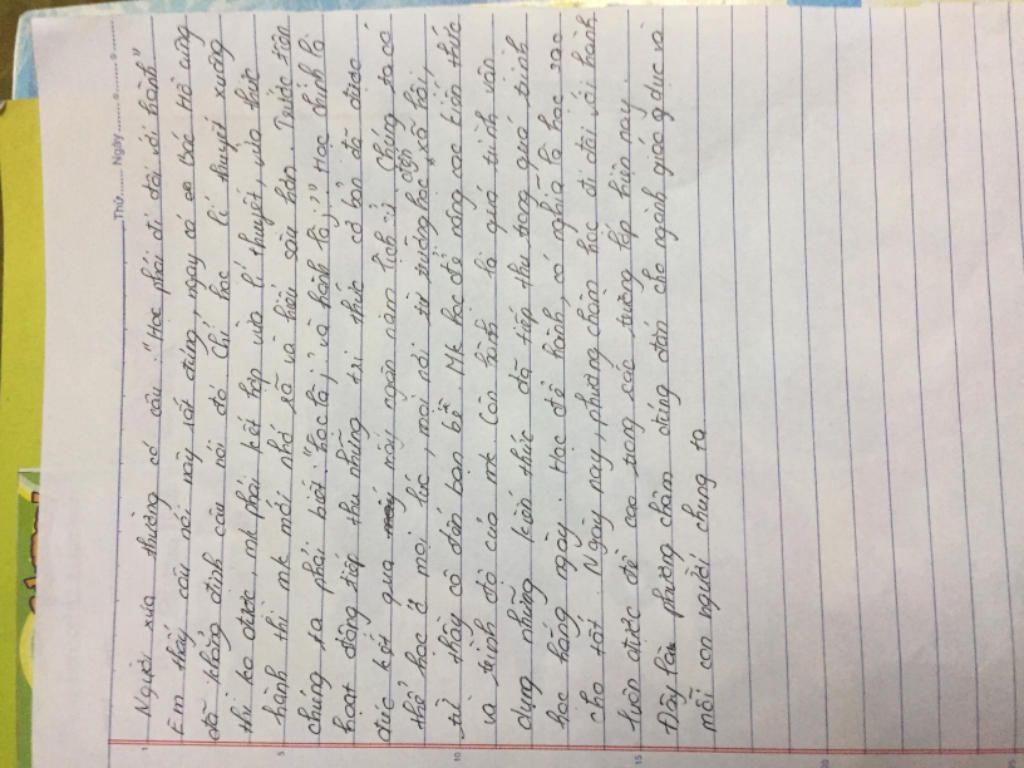 Thứ....... Ngày.........
Người xưa thường có câu : "Học phải đi đôi với hành"
Em thấy câu nói này rất đúng, ngay cả Bác Hồ cũng
đã khẳng định câu nói đó. Chỉ học lí thuyết xuông
thì ko được, mk phải kết hợp vừa lí thuyết, vừa thực
hành thì mk mới nhớ rõ và hiểu sâu hơn. Trước tiên
chúng ta phải biết "học là j" và hành là j". Học chính là
hoạt động tiếp thu những tri thức cơ bản đã được
đúc kết qua mấy ngàn năm lịch sử. Chúng ta có
thể học ở mọi lúc, mọi nơi từ trường học đến xã hội,
từ thầy cô đến bạn bè. Mk học để nâng cao kiến thức
và trình độ của mk. Còn hành là quá trình vận
dụng những kiến thức đã tiếp thu trong quá trình
học hằng ngày. Học để hành, có nghĩa là học sao
cho tốt. Ngày nay, phương châm học đi đôi với hành
luôn được đề cao trong các trường lớp hiện nay
Đây là phương châm đúng đắn cho ngành giáo dục và
mỗi con người chúng ta
1
5
10
15
20
25